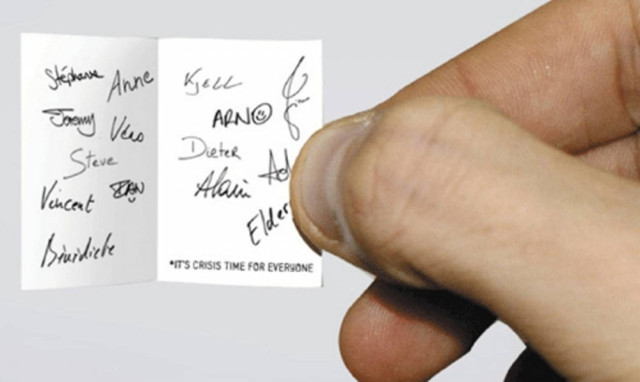 Stéphane
Anne
Jeremy
Vero
Steve
Vincent
Bénédicte
Kjell
ARNO
Dieter
Alain
Elder
*IT'S CRISIS TIME FOR EVERYONE